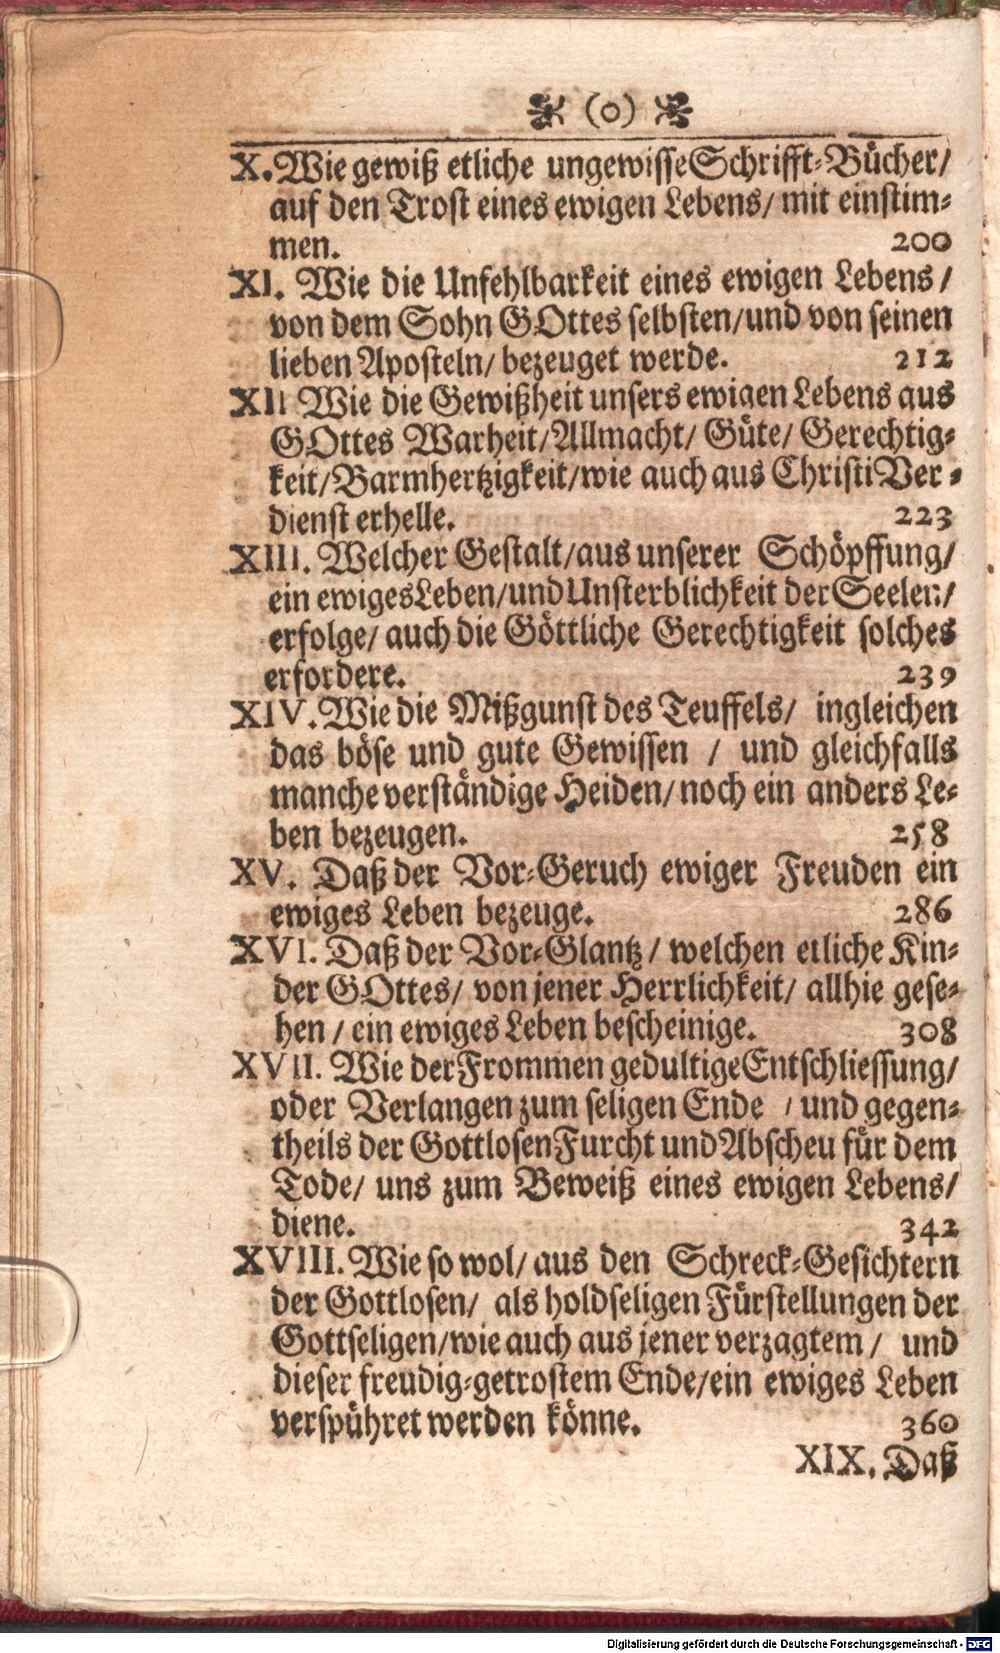 (o)
X. Wie gewiß etliche ungewisse Schrifft-Bücher/
auf den Trost eines ewigen Lebens/ mit einstim-
men. 200
XI. Wie die Unfehlbarkeit eines ewigen Lebens/
von dem Sohn GOttes selbsten/ und von seinen
lieben Aposteln/ bezeuget werde. 212
XII Wie die Gewißheit unsers ewigen Lebens aus
GOttes Warheit/ Allmacht/ Güte/ Gerechtig-
keit/ Barmhertzigkeit/ wie auch aus Christi Ver-
dienst erhelle. 223
XIII. Welcher Gestalt/ aus unserer Schöpffung/
ein ewiges Leben/ und Unsterblichkeit der Seelen/
erfolge/ auch die Göttliche Gerechtigkeit solches
erfordere. 239
XIV. Wie die Mißgunst des Teuffels/ ingleichen
das böse und gute Gewissen / und gleichfalls
manche verständige Heiden/ noch ein anders Le-
ben bezeugen. 258
XV. Daß der Vor-Geruch ewiger Freuden ein
ewiges Leben bezeuge. 286
XVI. Daß der Vor-Glantz / welchen etliche Kin-
der GOttes/ von jener Herrlichkeit/ allhie gese-
hen / ein ewiges Leben bescheinige. 308
XVII. Wie der Frommen gedultige Entschliessung/
oder Verlangen zum seligen Ende / und gegen-
theils der Gottlosen Furcht und Abscheu für dem
Tode/ uns zum Beweiß eines ewigen Lebens/
diene. 342
XVIII. Wie so wol/ aus den Schreck-Gesichtern
der Gottlosen/ als holdseligen Fürstellungen der
Gottseligen/ wie auch aus jener verzagtem / und
dieser freudig-getrostem Ende/ ein ewiges Leben
verspühret werden könne. 360
XIX. Daß
Digitalisierung gefördert durch die Deutsche Forschungsgemeinschaft - DFG